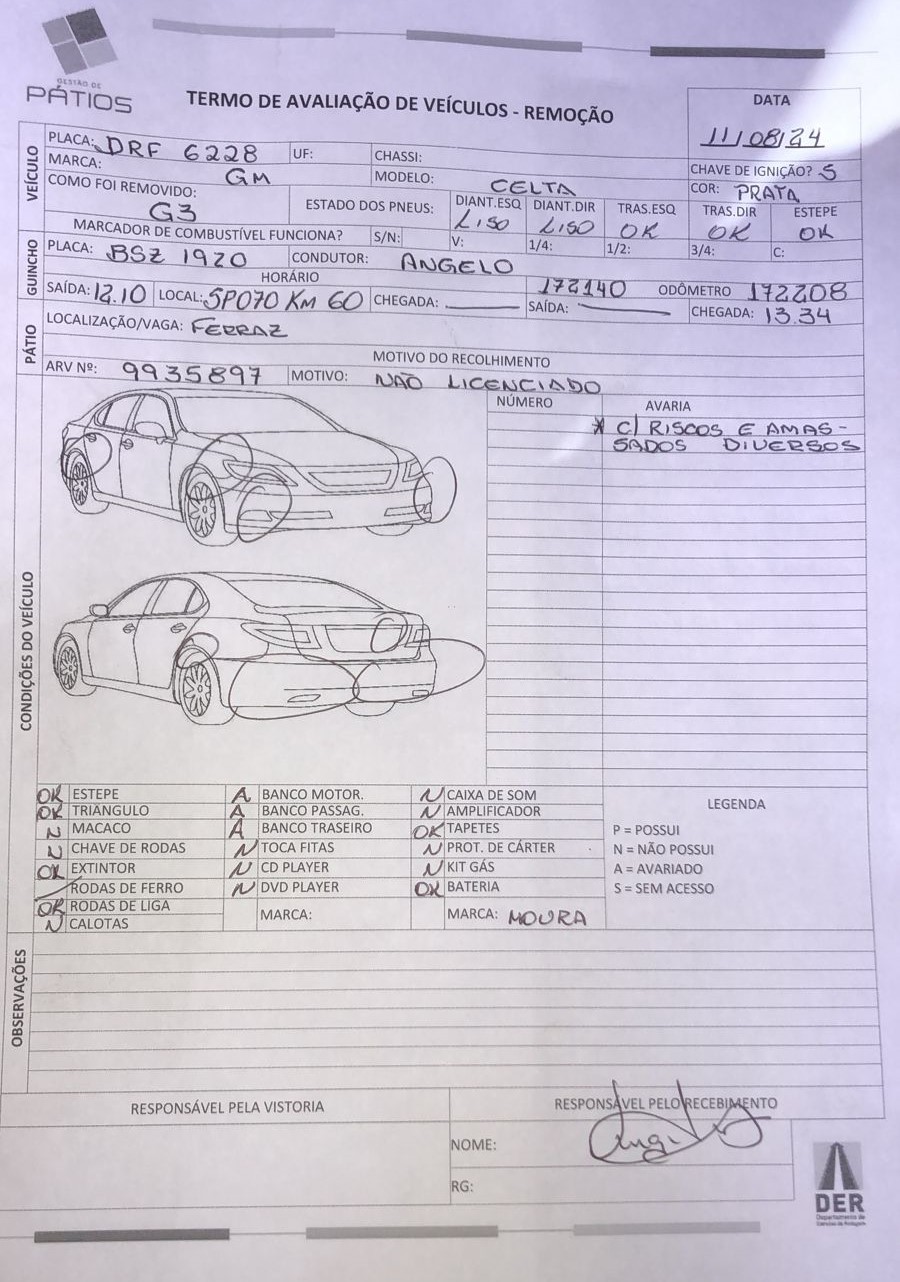 GESTÃO DE
PÁTIOS
TERMO DE AVALIAÇÃO DE VEÍCULOS - REMOÇÃO
DATA
11/08/24
VEÍCULO
PLACA: DRF 6228 UF: CHASSI: CHAVE DE IGNIÇÃO? S
MARCA: GM MODELO: CELTA COR: PRATA
COMO FOI REMOVIDO: G3 ESTADO DOS PNEUS: DIANT.ESQ LISO DIANT.DIR LISO TRAS.ESQ OK TRAS.DIR OK ESTEPE OK
MARCADOR DE COMBUSTÍVEL FUNCIONA? S/N: V: 1/4: 1/2: 3/4: C:
GUINCHO
PLACA: BSZ 1920 CONDUTOR: ANGELO
HORÁRIO 172140 ODÔMETRO 172208
SAÍDA: 12.10 LOCAL: SP070 KM 60 CHEGADA: SAÍDA: CHEGADA: 13.34
PÁTIO
LOCALIZAÇÃO/VAGA: FERRAZ
MOTIVO DO RECOLHIMENTO
ARV Nº: 9935897 MOTIVO: NÃO LICENCIADO
CONDIÇÕES DO VEÍCULO
NÚMERO AVARIA
* C/ RISCOS E AMAS-
SADOS DIVERSOS
OK ESTEPE A BANCO MOTOR. N CAIXA DE SOM LEGENDA
OK TRIANGULO A BANCO PASSAG. N AMPLIFICADOR
N MACACO A BANCO TRASEIRO OK TAPETES P = POSSUI
N CHAVE DE RODAS N TOCA FITAS N PROT. DE CÁRTER N = NÃO POSSUI
OK EXTINTOR N CD PLAYER N KIT GÁS A = AVARIADO
RODAS DE FERRO N DVD PLAYER OK BATERIA S = SEM ACESSO
OK RODAS DE LIGA MARCA: MARCA: MOURA
N CALOTAS
OBSERVAÇÕES
RESPONSÁVEL PELA VISTORIA RESPONSÁVEL PELO RECEBIMENTO
NOME:
RG:
DER